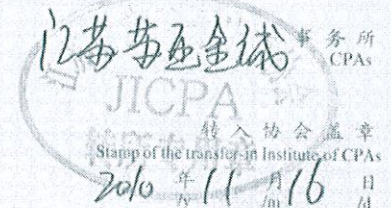 江苏苏亚金诚 事务所
CPAs
JICPA
转入协会盖章
Stamp of the transfer-in Institute of CPAs
2010 年 11 月 16 日
/y /m /d